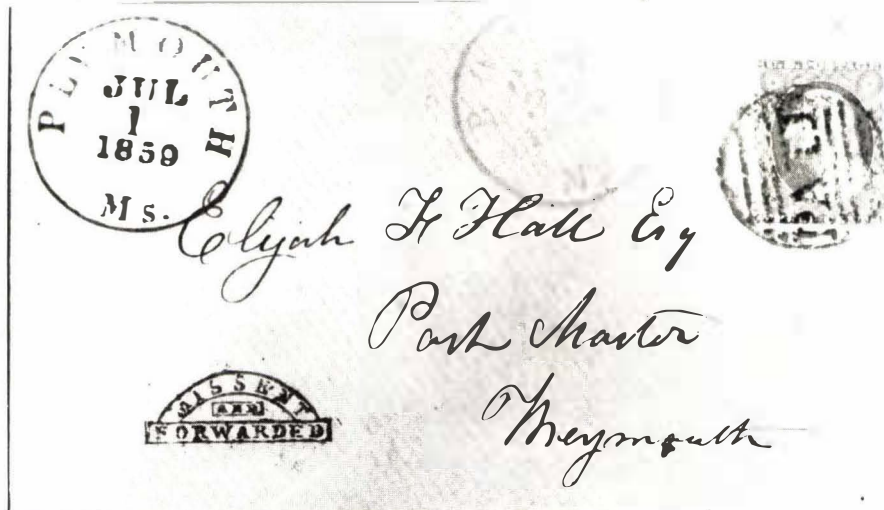 PLYMOUTH
JUL
1
1859
Ms.
PAID
Elijah F Hall Esq
Post Master
Weymouth
MISSENT
AND
FORWARDED